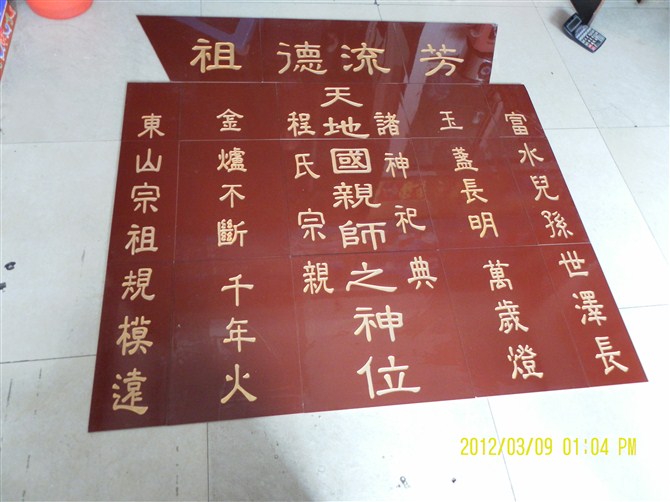 祖德流芳
東山宗祖規模遠
金爐不斷千年火
程氏宗親
天地國親師之神位
諸神祀典
玉盞長明萬歲燈
富水兒孫世澤長
2012/03/09 01:04 PM